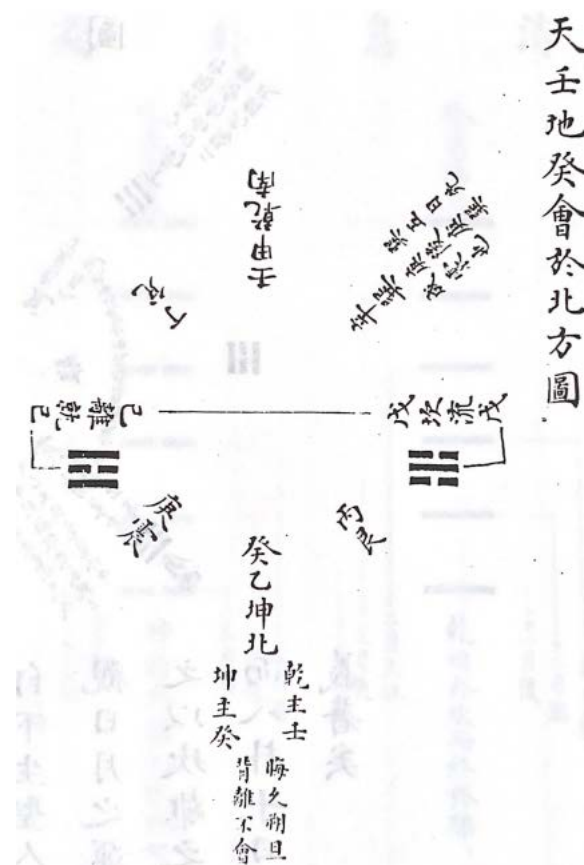 天壬地癸會於北方圖
壬甲乾南
丁兌
己離就己
戊坎流戊
庚震
丙艮
癸乙坤北
乾主壬
坤主癸
晦夕朔旦
背離不會